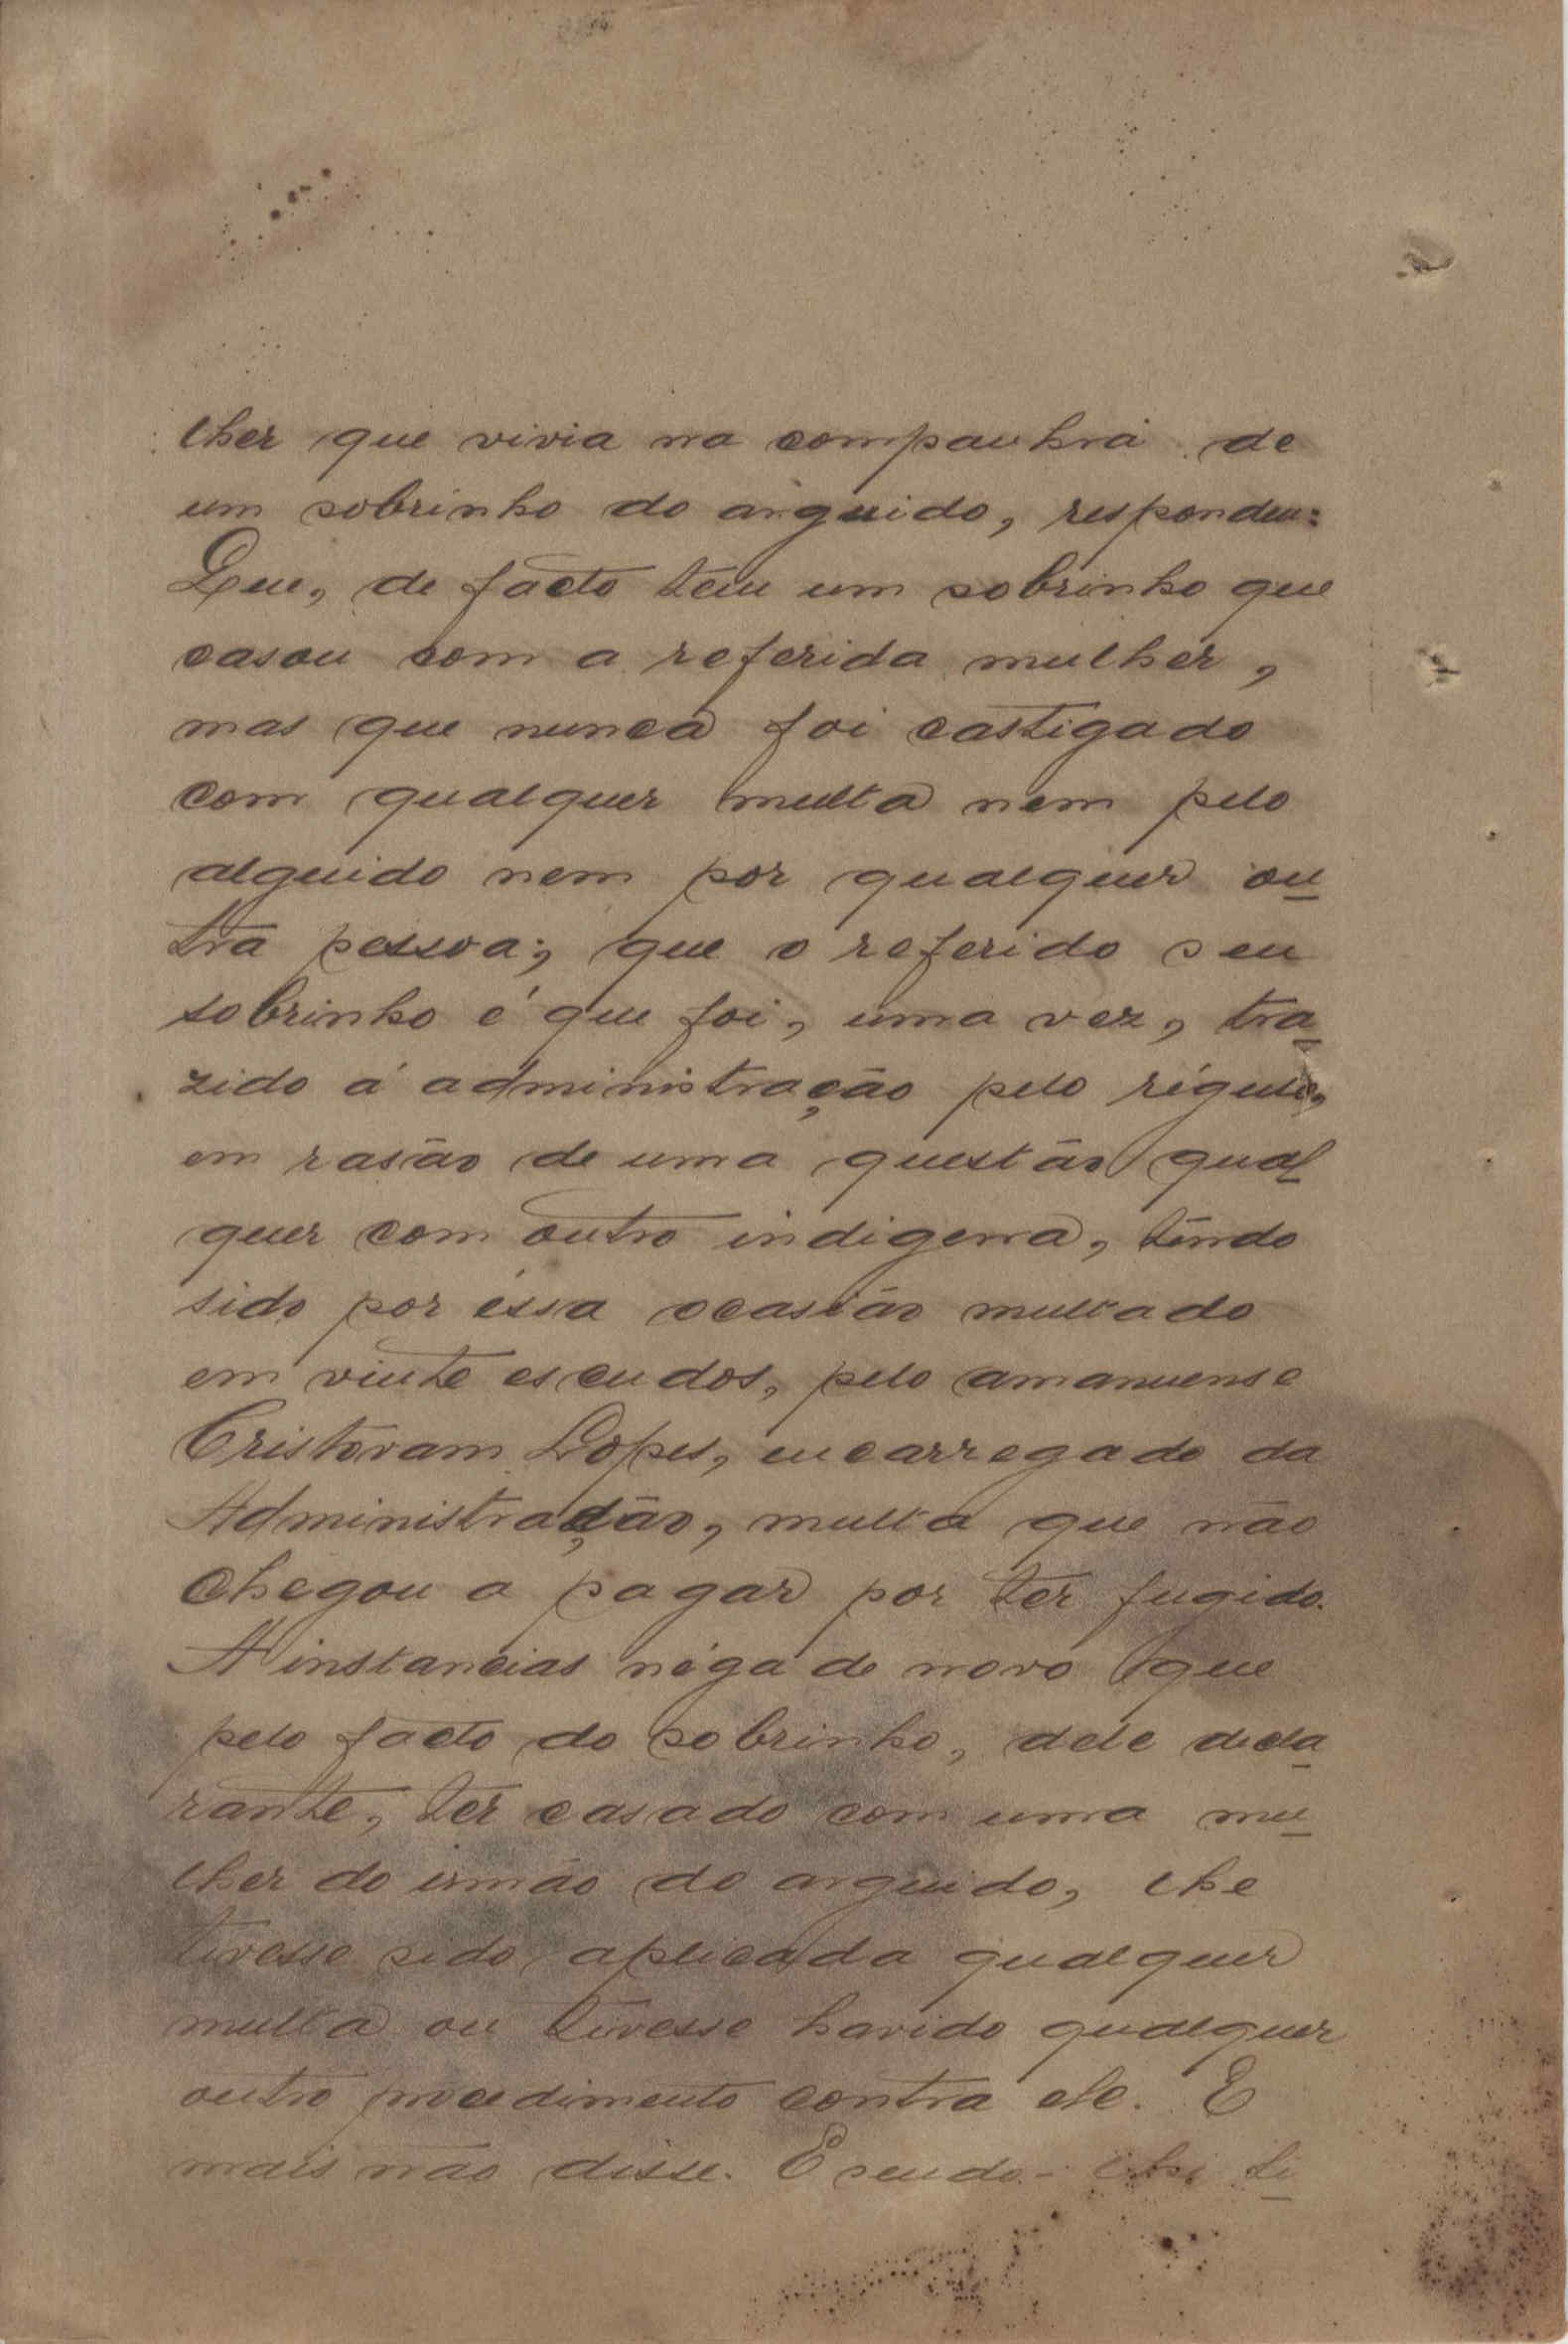 lher que vivia na companhia de
um sobrinho do arguido, respondeu:
Que, de facto têm um sobrinho que
casou com a referida mulhér,
mas que nunca foi castigado
com qualquer multa nem pelo
alguido nem por qualquer ou-
tra pessoa; que o referido seu
sobrinho é que foi, uma vez, tra-
zido á administração pelo régulo,
em rasão de uma questão qual-
quer com outro indigena, têndo
sido por éssa ocasião multado
em vinte escudos, pelo amanuense
Cristovam Lopes, encarregado da
Administração, multa que não
chegou a pagar por ter fugido.
A instancias néga de novo que
pelo facto do sobrinho, dele decla-
rante, ter casado com uma mu-
lher do irmão do arguido, lhe
tivesse sido aplicada qualquer
multa ou tivesse havido qualquer
outro procedimento contra ele. E
mais não disse. E sendo-lhe li-